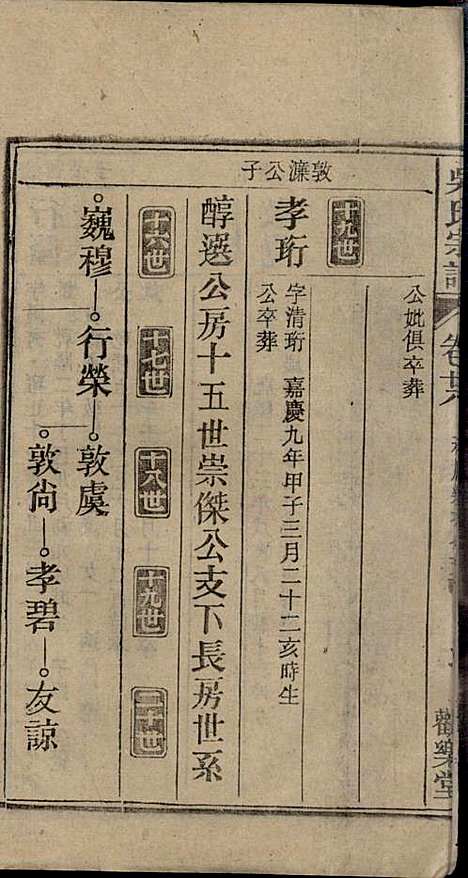 吳氏宗譜
卷廿六
歡樂堂
公妣俱卒葬
十九世
敦濂公子
孝珩
字清珩 嘉慶九年甲子三月二十二亥時生
公卒葬
醇選公房十五世崇傑公支下長房世系
十六世
十七世
十八世
十九世
二十世
巍穆
行榮
敦虞
敦尙
孝碧
友諒